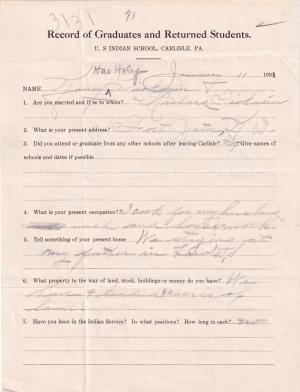 3131
Record of Graduates and Returned Students.
U. S INDIAN SCHOOL, CARLISLE, PA.
January 11 191
NAME Nancy
1. Are you married and if so to whom? Richard
2. What is your present address?
3. Did you attend or graduate from any other schools after leaving Carlisle? No Give names of
schools and dates if possible
4. What is your present occupation? I cook for my husband
wash and housework
5. Tell something of your present home We staying at
my father in Law's
6. What property in the way of land, stock, buildings or money do you have? We
have acres of
land
7. Have you been in the Indian Service? In what positions? How long in each? no